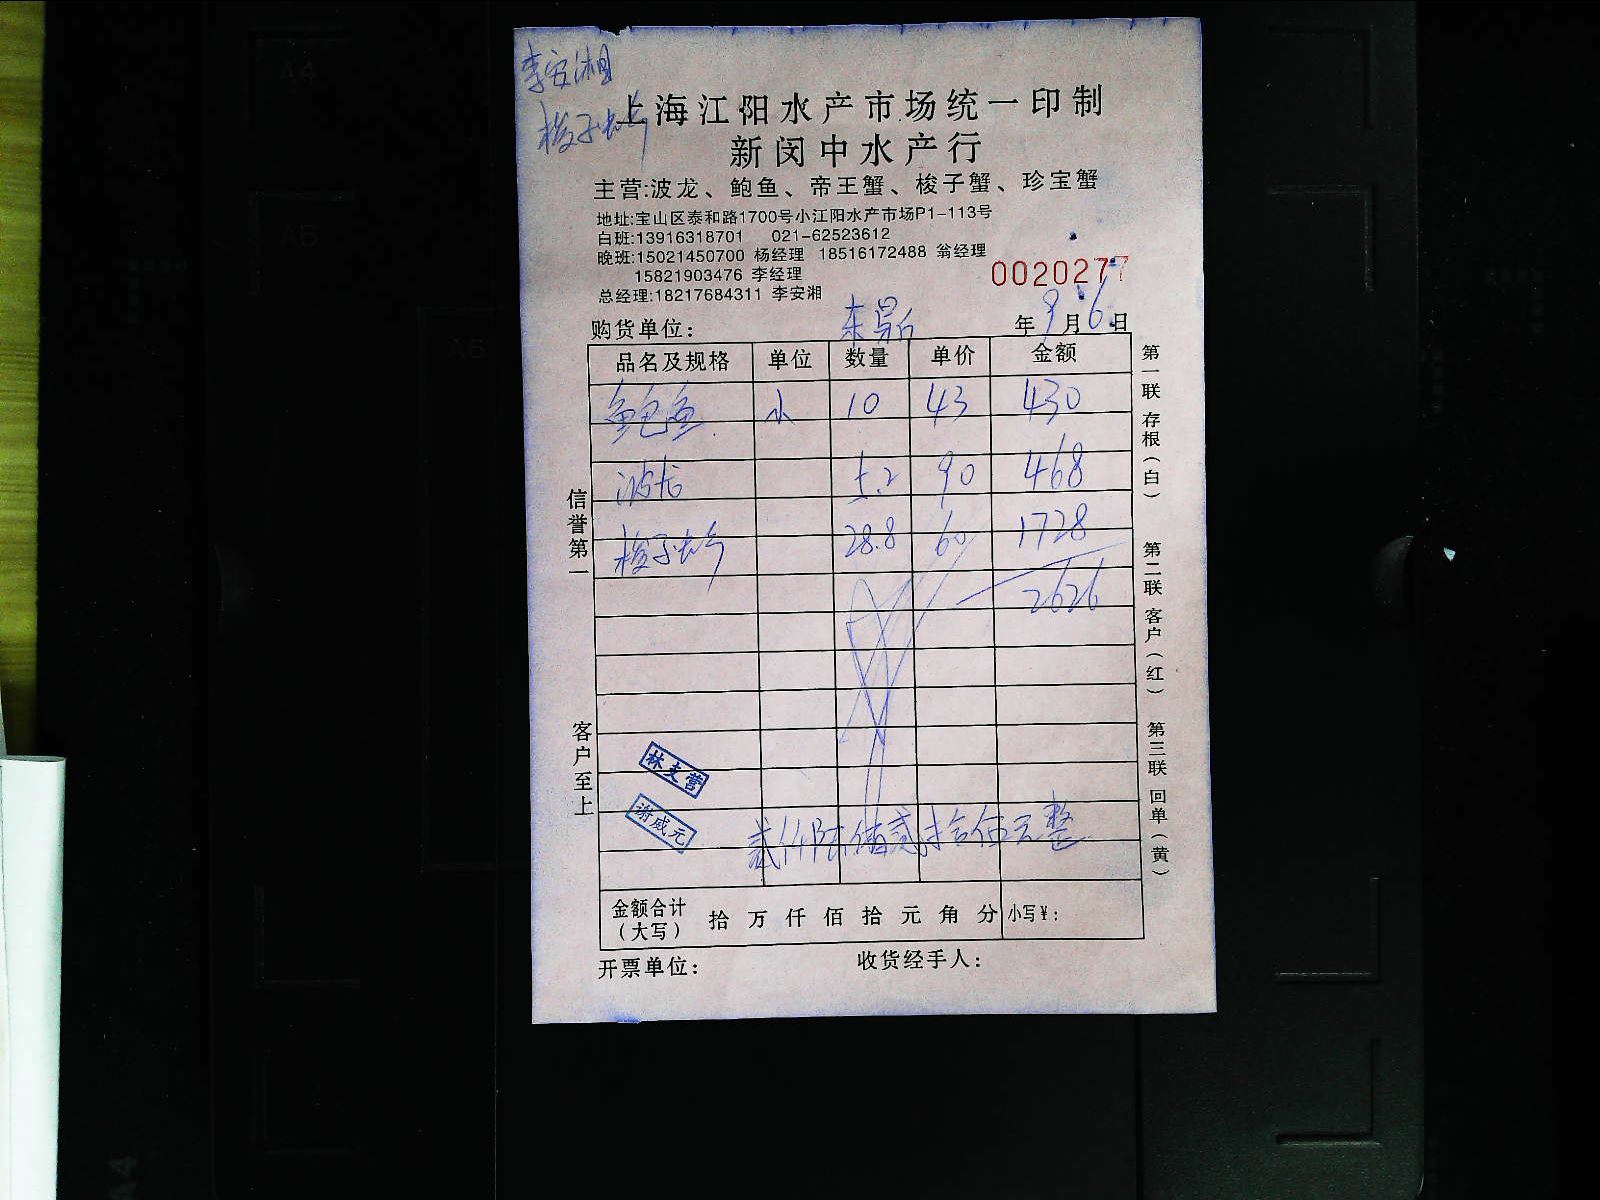 李安湘
梭子蟹
上海江阳水产市场统一印制
新闵中水产行
主营:波龙、鲍鱼、帝王蟹、梭子蟹、珍宝蟹
地址:宝山区泰和路1700号小江阳水产市场P1-113号
白班:13916318701 021-62523612
晚班:15021450700 杨经理 18516172488 翁经理
15821903476 李经理
总经理:18217684311 李安湘
0020277
购货单位: 年9月6日
品名及规格 单位 数量 单价 金额
鲍鱼 小 10 43 430
波龙 5.2 90 468
梭子蟹 28.8 60 1728
2626
林支营
谢威元
贰仟陆佰贰拾伍元整
金额合计(大写) 拾万仟佰拾元角分 小写¥:
开票单位: 收货经手人:
信誉第一
客户至上
第一联 存根(白)
第二联 客户(红)
第三联 回单(黄)
A4
A5
A5
A4